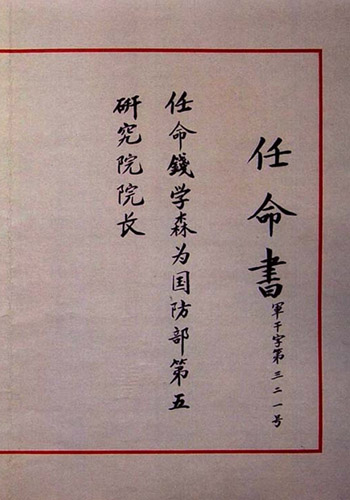 任命書
軍干字第三二一号
任命錢学森为国防部第五
研究院院长